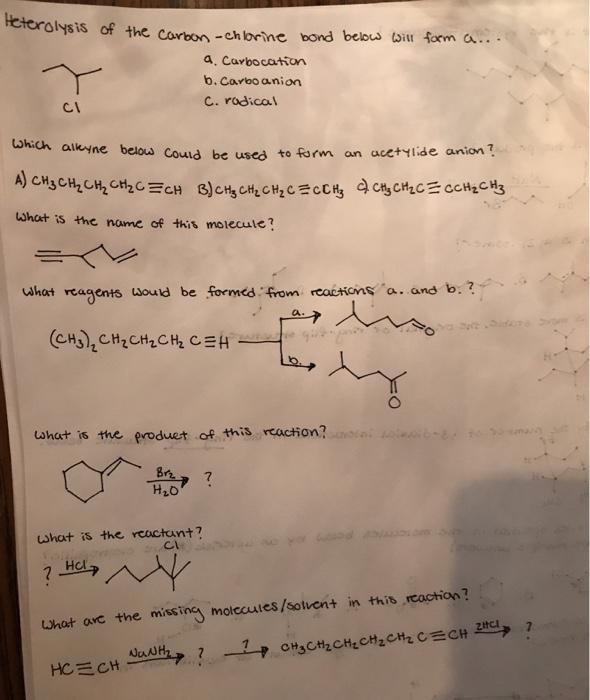 Heterolysis of the Carbon-chlorine bond below will form a...
a. Carbocation
b. Carboanion
c. radical
Cl
Which alkyne below could be used to form an acetylide anion?
A) CH3CH2CH2CH2C≡CH B) CH3CH2CH2C≡CCH3 C) CH3CH2C≡CCH2CH3
What is the name of this molecule?
What reagents would be formed from reactions a. and b.?
a.
O
(CH3)2CHCH2CH2C≡H
b.
O
What is the product of this reaction?
Br2
H2O
?
What is the reactant?
Cl
? HCl
What are the missing molecules/solvent in this reaction?
HC≡CH NaNH2 ? ? CH3CH2CH2CH2CH2C≡CH 2HCl ?